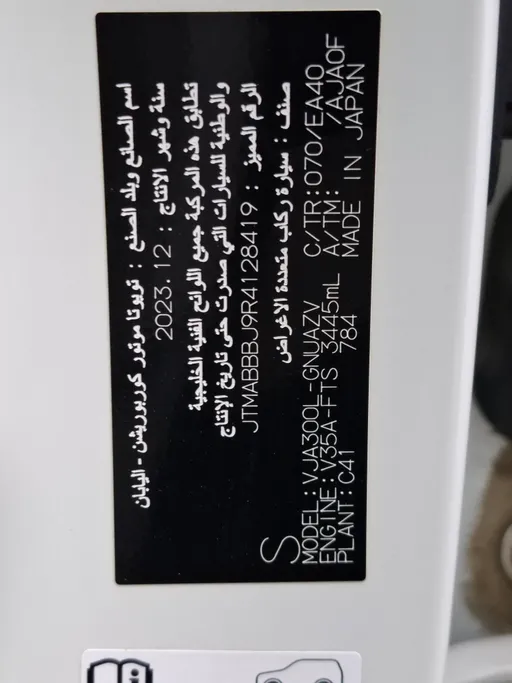 اسم الصانع وبلد الصنع : تويوتا موتور كوربوريشن - اليابان
سنة وشهر الانتاج : 2023.12
تطابق هذه المركبة جميع اللوائح الفنية الخليجية
والوطنية للسيارات التي صدرت حتى تاريخ الإنتاج
الرقم المميز : JTMABBBJ9R4128419
صنف : سيارة ركاب متعددة الاغراض
S
MODEL:VJA300L-GNUAZV C/TR:070/EA40
ENGINE:V35A-FTS 3445mL A/TM: /AJA0F
PLANT:C41 784 MADE IN JAPAN